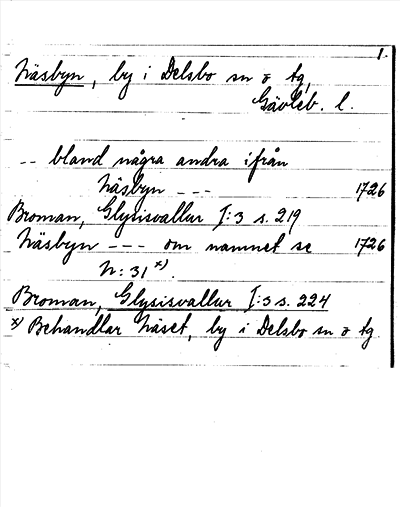 1.
Näsbyn, by i Delsbo sn o tg,
Gävleb. l.
-- bland några andra ifrån
Näsbyn --- 1726
Broman, Glysisvallur I:3 s. 219
Näsbyn --- om namnet se 1726
N: 31 x).
Broman, Glysisvallur I:3 s. 224
x) Behandlar Näset, by i Delsbo sn o tg